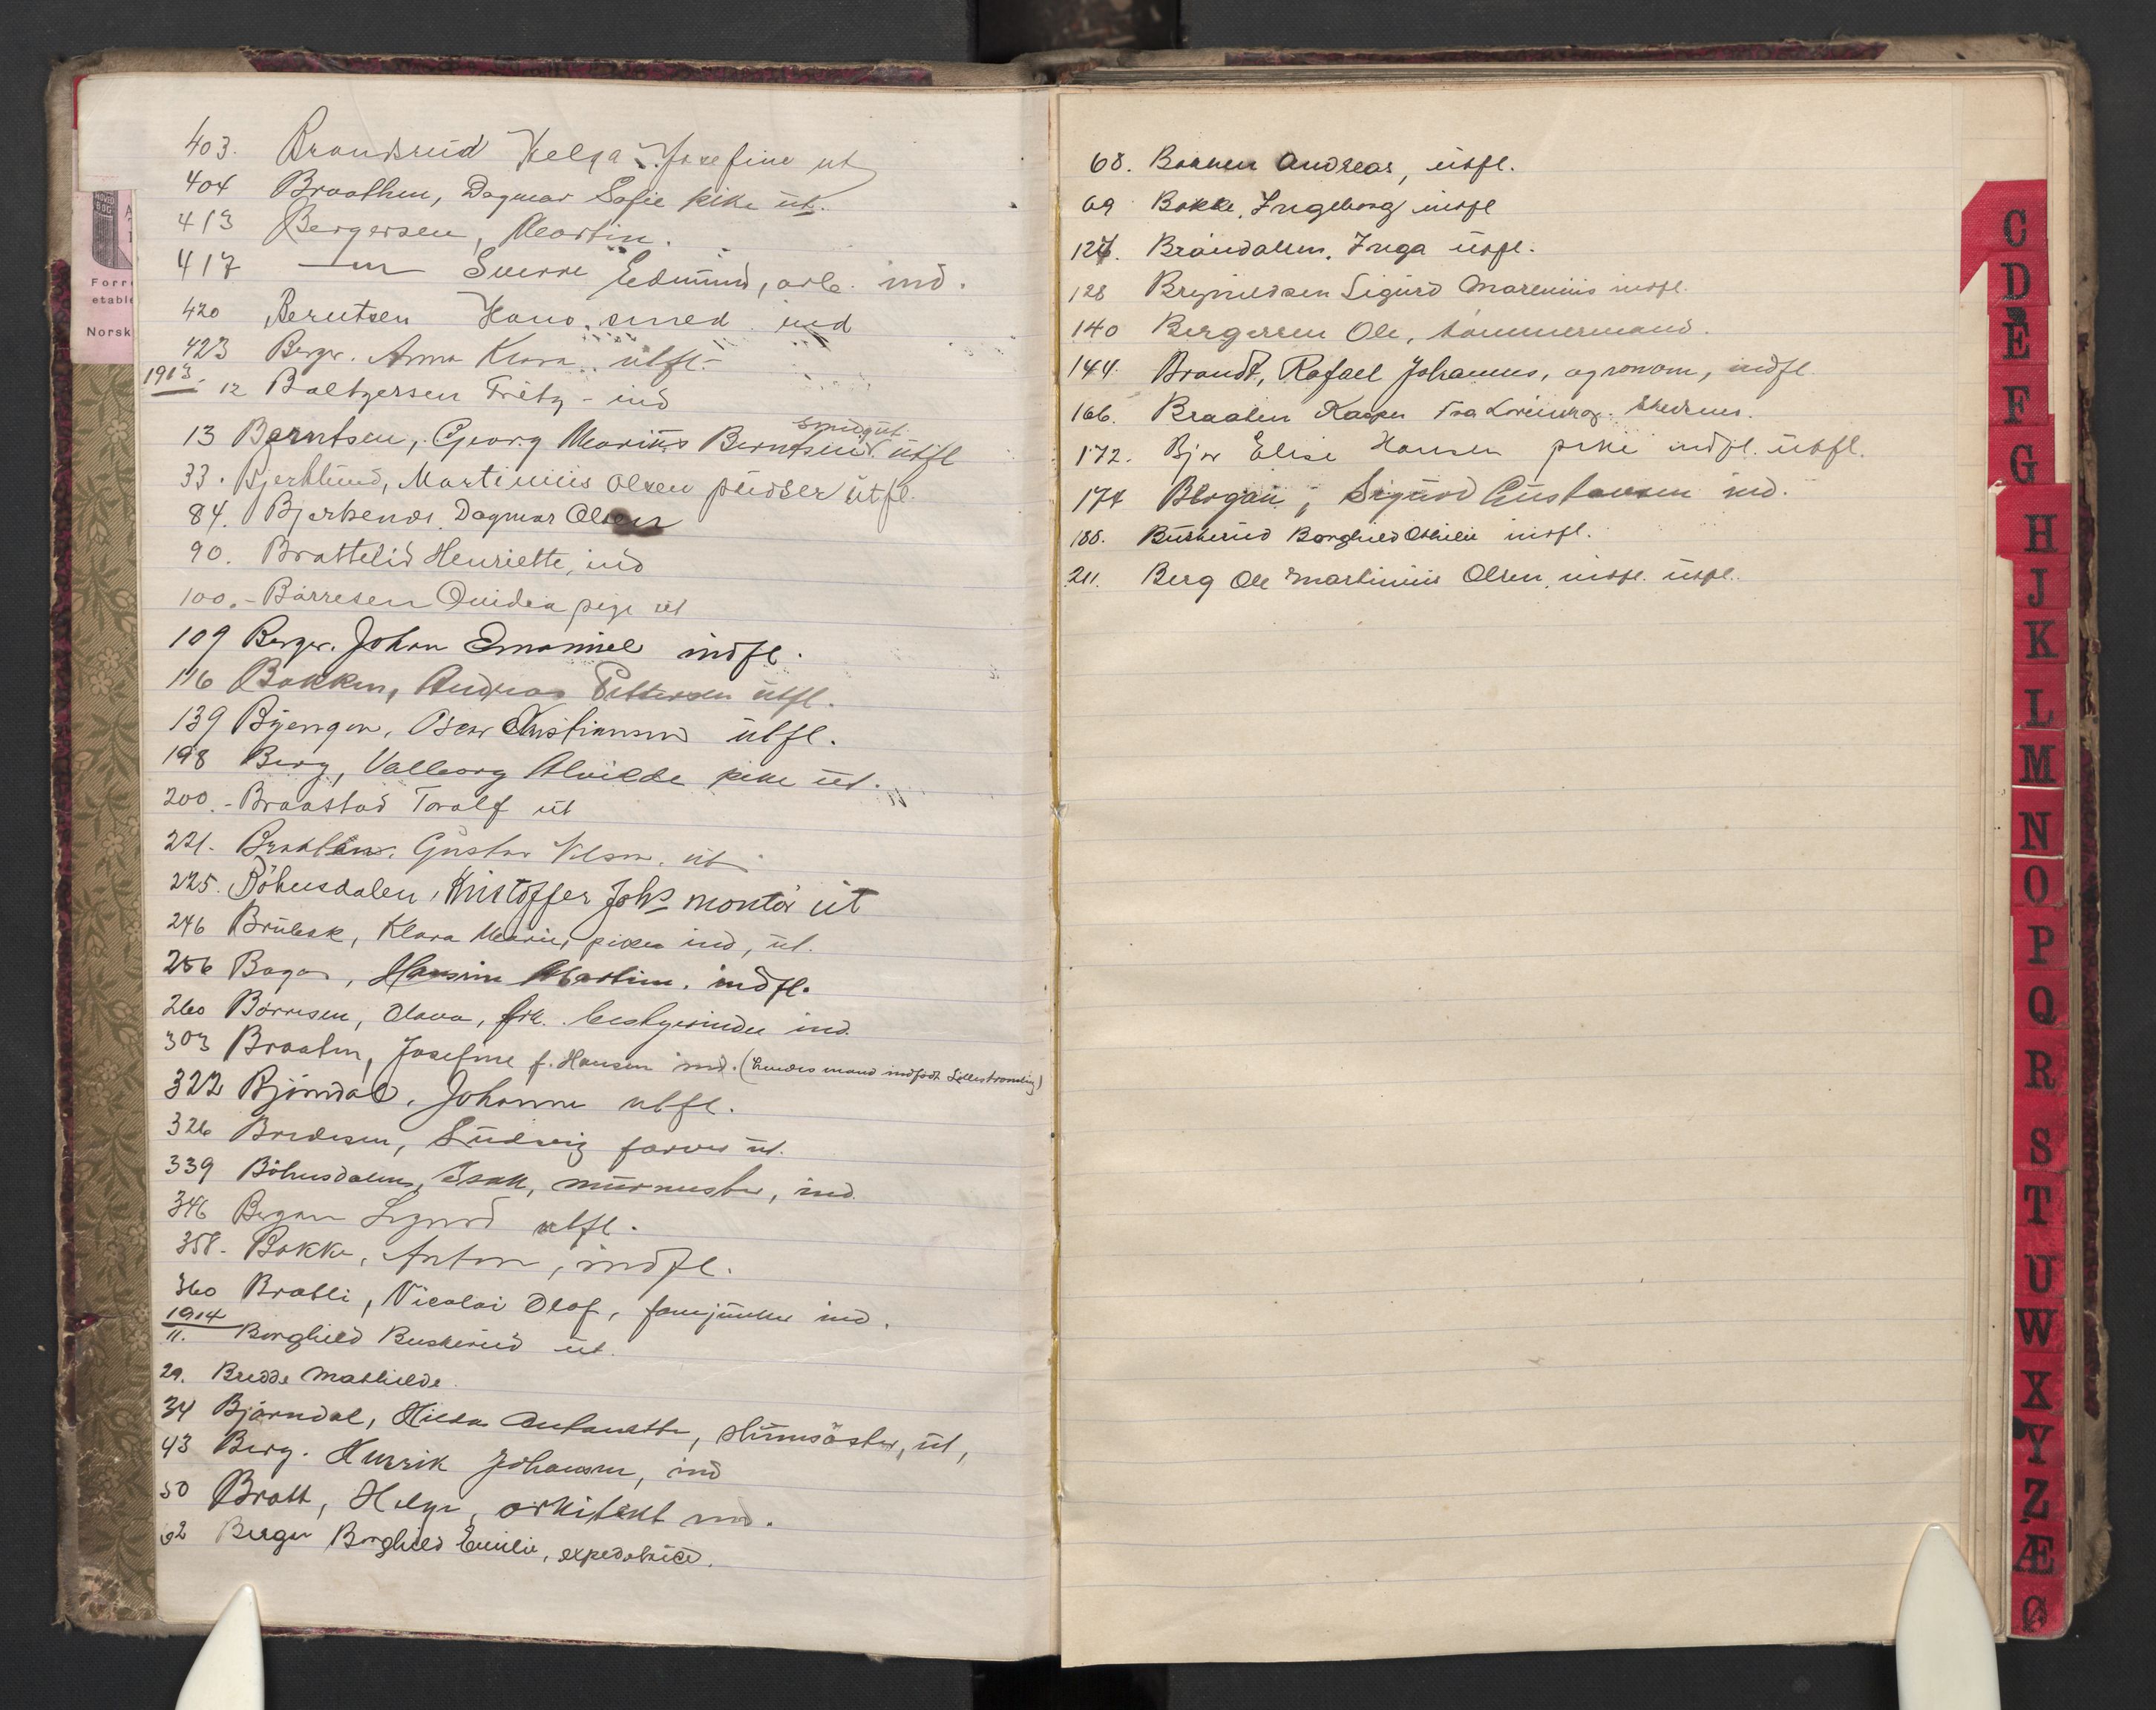 403. Brandsrud Helga Josefine ut
404 Braathen, Dagmar Sofie pike ut.
413 Bergersen, Martin.
417 —"— Sverre Edmund, arb. ind.
420 Berntsen Hans, smed ind
423 Berger. Anna Klara. utfl.
1913. 12 Baltzersen Fritz - ind
smedgut
13 Berntsen, Georg Marius Berntsen utfl
33. Bjerklund, Martinius Olsen pudser utfl.
84. Bjerkenes. Dagmar Olsen
90. Brattelid Henriette, ind
100. - Børresen Ovidia pige ut
109 Berger. Johan Emanuel indfl.
116 Bakken, Andreas Pettersen utfl.
139 Byengen, Oscar Kristiansen utfl.
198 Berg, Valborg Alvilde pike ut.
200. - Braastad Toralf ut
221. Braaten. Gustav Nilsen. ut
225. Böhusdalen, Kristoffer Johs montör ut
246 Brubak, Klara Marie, pike ind, ut.
256 Bagas, Hansine Martine. indfl.
260 Börresen, Olava, frk. bestyrinde ind.
303 Braaten, Josefine f. Hansen ind. (hendes mand indfødt Lillestrømling)
322 Björndal, Johanne utfl.
326 Bredesen, Ludvig farver ut.
339 Böhusdalen, Isak, murmester, ind.
346 Bergan Sigurd utfl.
358. Bakke, Anton, indfl.
360 Bratli, Nicolai Olaf, fanejunker ind.
1914
11. Borghild Buskerud ut.
29. Bredde Mathilde.
34 Björndal, Hilda Antonette, ut,
43 Berg. Henrik Johansen, ind
50 Bratt, Helge, arkitekt ind.
62 Berger Borghild Emilie, expeditrice.
68. Bakken Andreas, utfl.
69 Bakke, Ingeborg indfl
127. Brandalen. Inga utfl.
128 Brynildsen Sigurd Marenius indfl.
140 Bergersen Ole, tømmermand.
144. Brandt, Rafael Johannes, agronom, indfl.
166. Braaten Kasper fra Lørenskog. Skedsmo.
172. Bjor Elise Hansen pike indfl. utfl.
174 Bergan, Sigurd Gustavsen ind.
188. Buskerud Borghild Othilie indfl.
211. Berg Ole Martinius Olsen, indfl. utfl.
Forr
etable
Norsk
C
D
E
F
G
H
J
K
L
M
N
O
P
Q
R
S
T
U
W
X
Y
Z
Æ
Ø